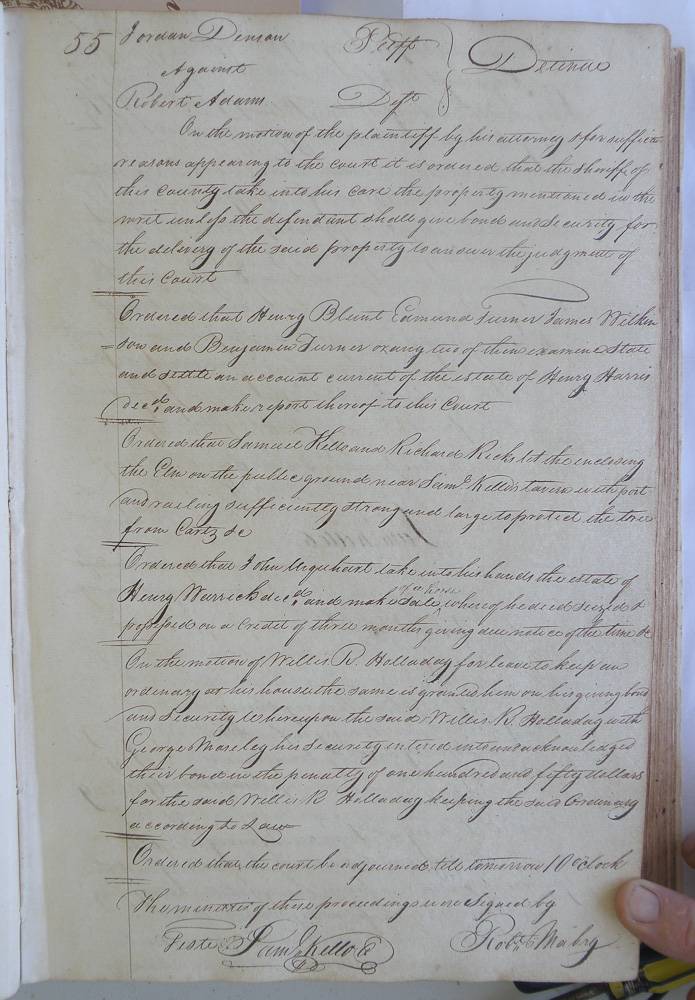 55
Jordan Denson Plff
Against
Detinue
Robert Adams Deft
On the motion of the plaintiff by his attorney & for sufficient
reasons appearing to the court it is ordered that the sheriff of
this County take into his care the property mentioned in the
writ unless the defendant shall give bond and security for
the delivery of the said property to answer the judgment of
this Court
Ordered that Henry Blunt Edmund Turner James Wilkin
son and Benjamin Turner or any two of them examine State
and settle an account current of the estate of Henry Harris
decd. and make report thereof to this Court
Ordered that Samuel Kello and Richard Ricks let the inclosing
the Elm on the public ground near Saml Kello's tavern with post
and railing sufficiently strong and large to protect the tree
from Carts &c
Ordered that John Urquhart take into his hands the estate of
Henry Warrick decd. and make sale of a horse whereof he died seized &
possessed on a Credit of three months giving due notice of the time &c
On the motion of Willis R. Holladay for leave to keep an
ordinary at his house the same is granted him on his giving bond
and Security Whereupon the said Willis R. Holladay with
George Maseley his Security entered into and acknowledged
their bond in the penalty of one hundred and fifty dollars
for the said Willis R Holladay keeping the said Ordinary
according to Law
Ordered that the court be adjourned till tomorrow 10 oClock
The minutes of these proceedings were Signed by
Teste Saml Kello C Robt. Mabry